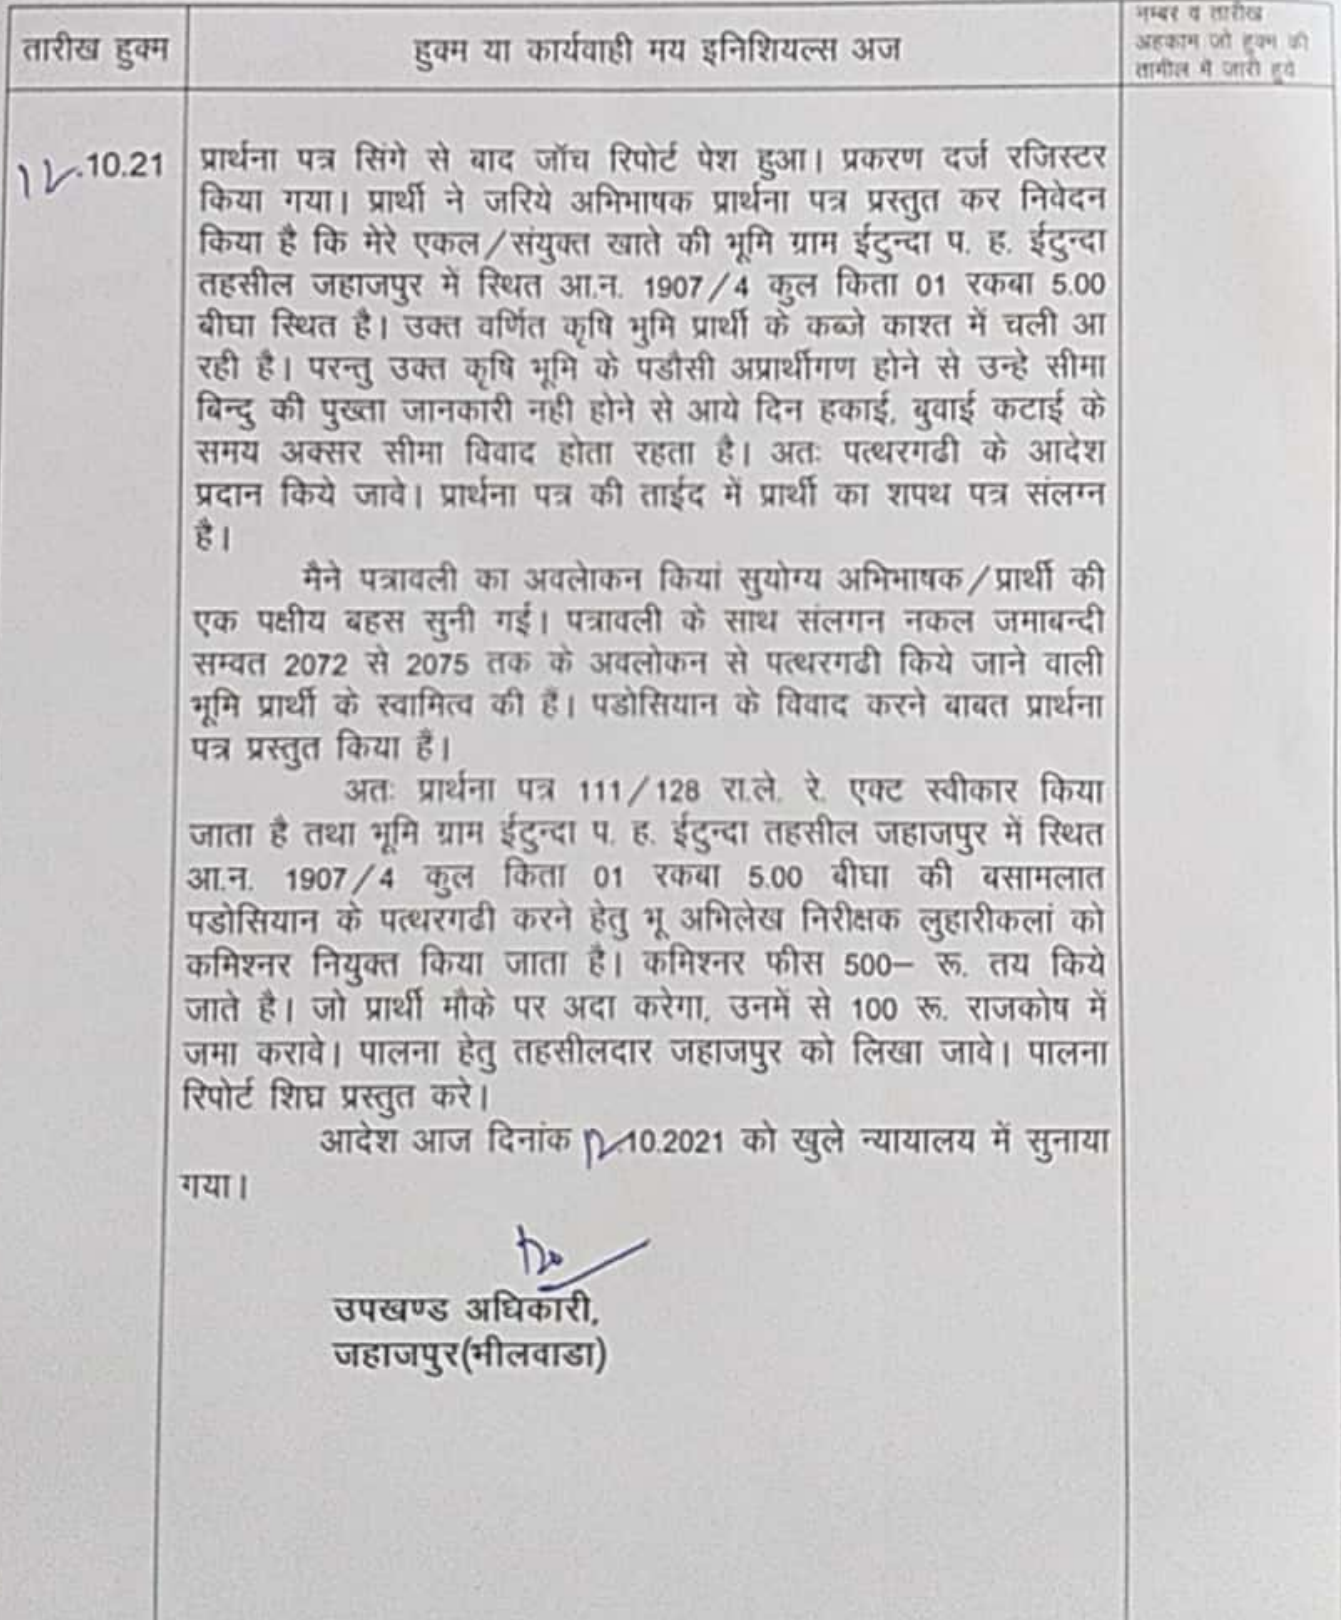 तारीख हुक्म
हुक्म या कार्यवाही मय इनिशियल्स अज
नम्बर व तारीख
अहकाम जो हुक्म की
तामील में जारी हुये
12.10.21
प्रार्थना पत्र सिंगे से बाद जॉच रिपोर्ट पेश हुआ। प्रकरण दर्ज रजिस्टर
किया गया। प्रार्थी ने जरिये अभिभाषक प्रार्थना पत्र प्रस्तुत कर निवेदन
किया है कि मेरे एकल/संयुक्त खाते की भूमि ग्राम ईटुन्दा प. ह. ईटुन्दा
तहसील जहाजपुर में स्थित आ.न. 1907/4 कुल किता 01 रकबा 5.00
बीघा स्थित है। उक्त वर्णित कृषि भुमि प्रार्थी के कब्जे काश्त में चली आ
रही है। परन्तु उक्त कृषि भूमि के पडौसी अप्रार्थीगण होने से उन्हे सीमा
बिन्दु की पुख्ता जानकारी नही होने से आये दिन हकाई, बुवाई कटाई के
समय अक्सर सीमा विवाद होता रहता है। अतः पत्थरगढी के आदेश
प्रदान किये जावे। प्रार्थना पत्र की ताईद में प्रार्थी का शपथ पत्र संलग्न
है।
मैने पत्रावली का अवलेाकन कियां सुयोग्य अभिभाषक/प्रार्थी की
एक पक्षीय बहस सुनी गई। पत्रावली के साथ संलगन नकल जमाबन्दी
सम्वत 2072 से 2075 तक के अवलोकन से पत्थरगढी किये जाने वाली
भूमि प्रार्थी के स्वामित्व की हैं। पडोसियान के विवाद करने बाबत प्रार्थना
पत्र प्रस्तुत किया हैं।
अतः प्रार्थना पत्र 111/128 रा.ले. रे. एक्ट स्वीकार किया
जाता है तथा भूमि ग्राम ईटुन्दा प. ह. ईटुन्दा तहसील जहाजपुर में स्थित
आ.न. 1907/4 कुल किता 01 रकबा 5.00 बीघा की बसामलात
पडोसियान के पत्थरगढी करने हेतु भू अभिलेख निरीक्षक लुहारीकलां को
कमिश्नर नियुक्त किया जाता है। कमिश्नर फीस 500– रू. तय किये
जाते है। जो प्रार्थी मौके पर अदा करेगा, उनमें से 100 रू. राजकोष में
जमा करावे। पालना हेतु तहसीलदार जहाजपुर को लिखा जावे। पालना
रिपोर्ट शिघ्र प्रस्तुत करे।
आदेश आज दिनांक 12.10.2021 को खुले न्यायालय में सुनाया
गया।
उपखण्ड अधिकारी,
जहाजपुर(भीलवाडा)